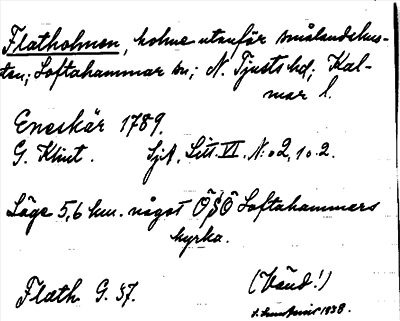 Flatholmen, holme utanför smålandskus-
ten; Loftahammar sn; N. Tjusts hd; Kal-
mar l.
Eneskär 1789.
G. Klint. SjA, Litt. VI. N:o 2, 1 o. 2.
Läge 5,6 km. något ÖSÖ Loftahammars
kyrka.
Flath G. 37. (Vänd!)
1938.